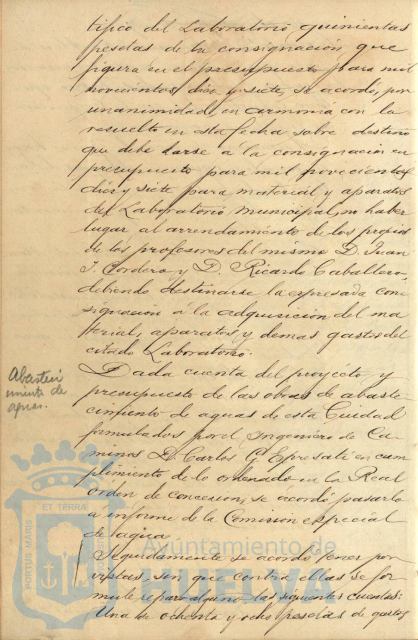 tifico del Laboratorio, quinientas
pesetas de la consignación, que
figura en el presupuesto para mil
novecientos diez y siete, se acordó, por
unanimidad, en armonía con lo
resuelto en esta fecha sobre destino
que debe darse á la consignación en
presupuesto para mil novecientos
diez y siete para material y aparatos
del Laboratorio Municipal, no haber
lugar al arrendamiento de los propios
de los profesores del mismo D. Juan
J. Cordero y D. Ricardo Caballero,
debiendo destinarse la expresada con
signación a la adquisición del ma
terial, aparatos y demas gastos del
citado Laboratorio.
Abasteci
miento de
aguas.
Dada cuenta del proyecto y
presupuesto de las obras de abaste
cimiento de aguas de esta Ciudad
formulados por el Ingeniero de Ca
minos D. Carlos G. Espresati en cum
plimiento de lo ordenado en la Real
orden de concesion, se acordó pasarlo
a informe de la Comision especial
de agua.
Seguidamente se acordó tener por
vistas, sin que contra ellas se for
mule reparo alguno las siguientes cuentas:
Una de ochenta y ocho pesetas de gastos
PORTUS MARIS ET TERRÆ
Ayuntamiento de
HUELVA